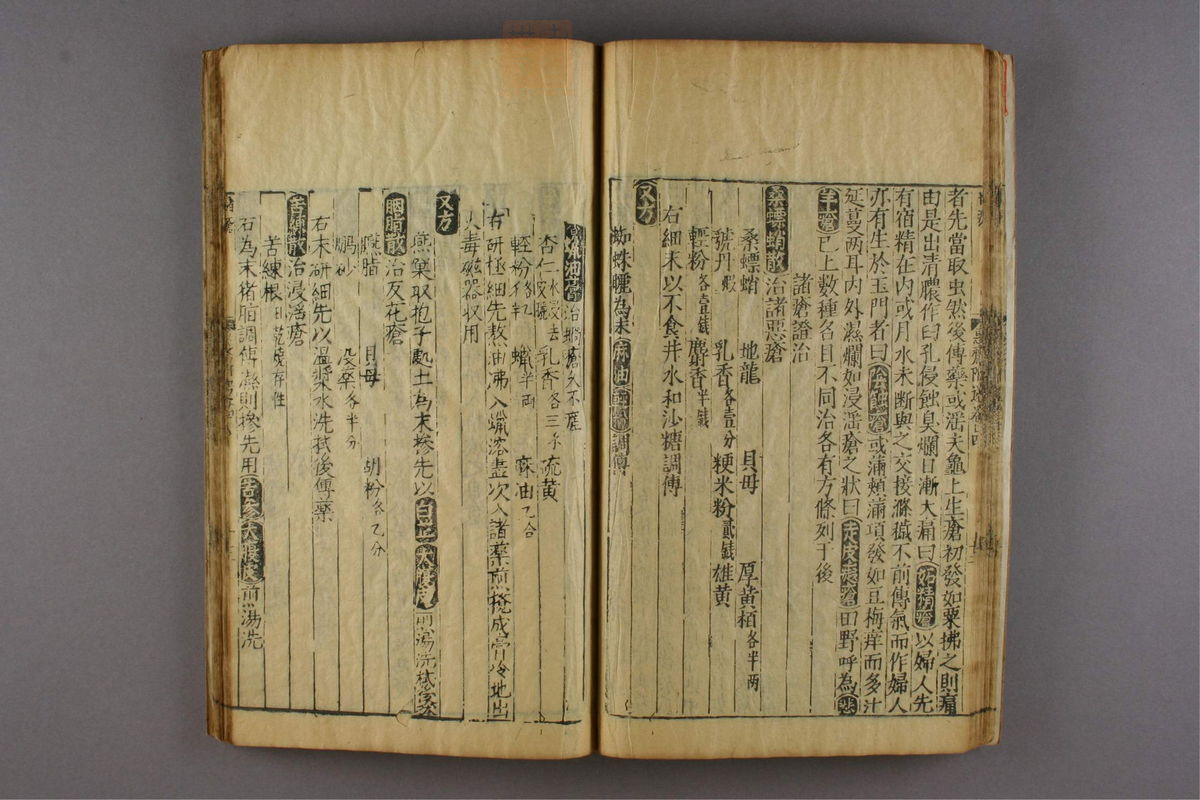 者先當取虫然後傅藥或滛夫龜上生瘡初發如粟拂之則痛
由是出清膿作臼孔侵蝕臭爛日漸大痛曰妬精瘡以婦人先
有宿精在内或月水未断與之交接滌穢不前傳氣而作婦人
亦有生於玉門者曰陰蝕瘡或滿頰滿項發如豆梅痒而多汁
延蔓兩耳内外濕爛如浸滛瘡之狀曰走皮瘡田野呼為悲
羊瘡已上数種名目不同治各有方條列于後
諸瘡證治
桑螵蛸散治諸惡瘡
桑螵蛸 地龍 貝母 厚黄栢各半两
虢丹煆 乳香各壹分 粳米粉貳錢 雄黄
輕粉各壹錢 麝香半錢
右細末以不食井水和沙糖調傅
又方
蜘蛛曬為末麻油輕粉調傅
油膏治蝸瘡久不差
杏仁水浸去皮 乳香各三 硫黄
輕粉各 蠟半两 麻油乙合
右研極細先熬油沸入蠟溶盡次入諸藥煎攪成膏冷地出
火毒磁器収用
又方
燕窠取抱子處土為末摻先以白芷大腹皮煎湯洗拭後
胭脂散治反花瘡
胭脂 貝母 胡粉各乙分
硼砂 没藥各半分
右末研細先以温漿水洗拭後傅藥
苦練散治浸滛瘡
苦練根日乾燒存性
右為末猪脂調傅濕則摻先用苦參大腹皮煎湯洗